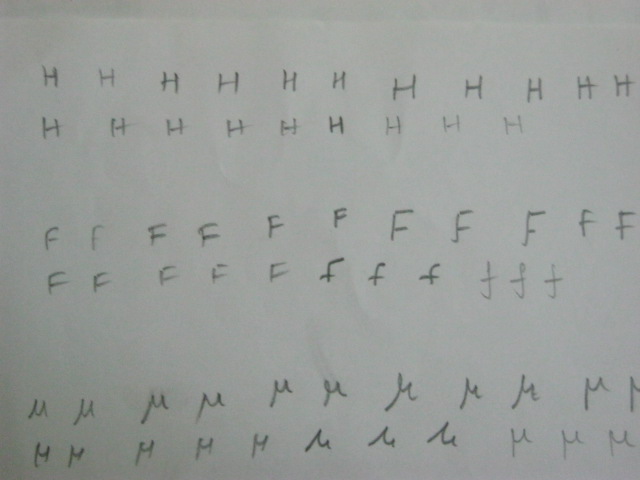 H H H H H H H H H H H
H H H H H H H H H
F F F F F F F F F F F
F F F F F f f f f f f
μ μ μ μ μ μ μ μ μ μ μ
μ μ μ μ μ μ μ μ μ μ μ